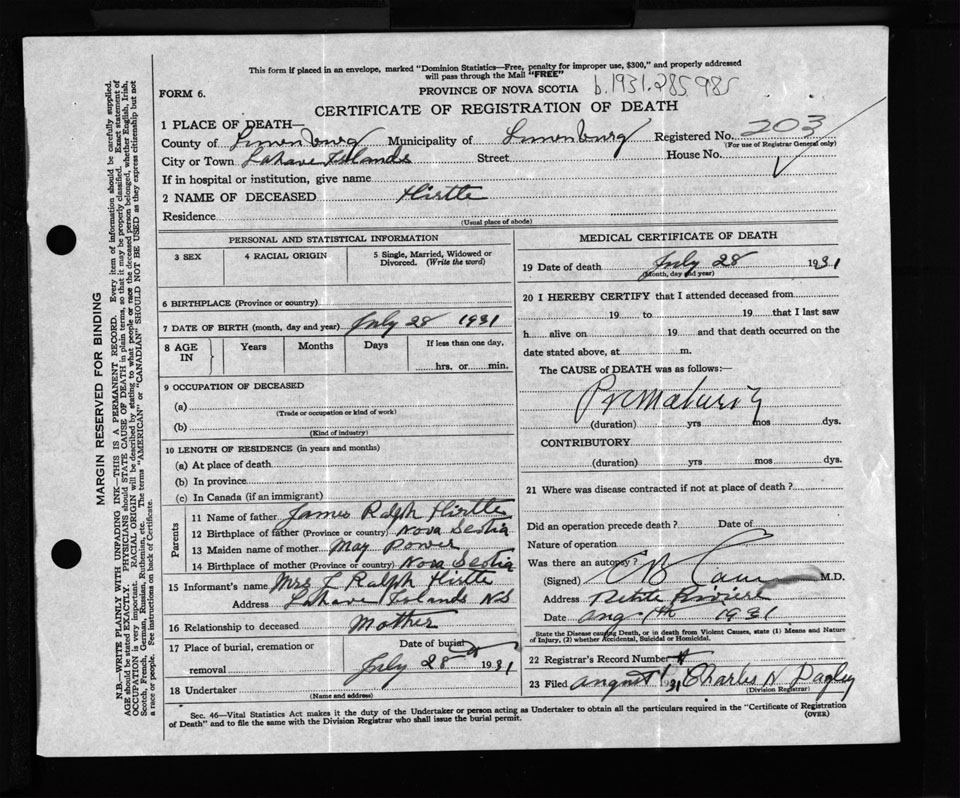 This form if placed in an envelope, marked "Dominion Statistics—Free, penalty for improper use, $300," and properly addressed
will pass through the Mail "FREE"
FORM 6.
PROVINCE OF NOVA SCOTIA b.1931.285985
CERTIFICATE OF REGISTRATION OF DEATH
1 PLACE OF DEATH—
County of Lunenburg Municipality of Lunenburg Registered No. 203
(For use of Registrar General only)
City or Town Lahave Islands Street House No.
If in hospital or institution, give name
2 NAME OF DECEASED Hirtle
Residence
(Usual place of abode)
PERSONAL AND STATISTICAL INFORMATION
3 SEX 4 RACIAL ORIGIN 5 Single, Married, Widowed or
Divorced. (Write the word)
6 BIRTHPLACE (Province or country)
7 DATE OF BIRTH (month, day and year) July 28 1931
8 AGE IN Years Months Days If less than one day,
hrs. or min.
9 OCCUPATION OF DECEASED
(a)
(Trade or occupation or kind of work)
(b)
(Kind of industry)
10 LENGTH OF RESIDENCE (in years and months)
(a) At place of death
(b) In province
(c) In Canada (if an immigrant)
Parents
11 Name of father James Ralph Hirtle
12 Birthplace of father (Province or country) Nova Scotia
13 Maiden name of mother May Power
14 Birthplace of mother (Province or country) Nova Scotia
15 Informant's name Mrs Ralph Hirtle
Address Lahave Islands NS
16 Relationship to deceased Mother
17 Place of burial, cremation or Date of burial
removal July 28 1931
18 Undertaker
(Name and address)
MEDICAL CERTIFICATE OF DEATH
19 Date of death July 28 1931
(Month, day and year)
20 I HEREBY CERTIFY that I attended deceased from
19 to 19 that I last saw
h alive on 19 and that death occurred on the
date stated above, at m.
The CAUSE of DEATH was as follows:—
Prematurity
(duration) yrs mos dys.
CONTRIBUTORY
(duration) yrs mos dys.
21 Where was disease contracted if not at place of death?
Did an operation precede death? Date of
Nature of operation
Was there an autopsy?
(Signed) M.D.
Address Petite Riviere
Date Aug 1931
State the Disease causing Death, or in death from Violent Causes, state (1) Means and Nature
of Injury, (2) whether Accidental, Suicidal or Homicidal.
22 Registrar's Record Number
23 Filed August 1 31 Charles N
(Division Registrar)
Sec. 46—Vital Statistics Act makes it the duty of the Undertaker or person acting as Undertaker to obtain all the particulars required in the "Certificate of Registration
of Death" and to file the same with the Division Registrar who shall issue the burial permit.
(OVER)
MARGIN RESERVED FOR BINDING
N.B.—WRITE PLAINLY WITH UNFADING INK—THIS IS A PERMANENT RECORD. Every item of information should be carefully supplied.
AGE should be stated EXACTLY. PHYSICIANS should STATE CAUSE OF DEATH in plain terms, so that it may be properly classified. Exact statement of
OCCUPATION is very important. RACIAL ORIGIN will be described by stating to what people or race the deceased person belonged, whether English, Irish,
Scotch, French, German, Russian, Ruthenian, etc. The terms "AMERICAN" or "CANADIAN" SHOULD NOT BE USED as they express citizenship but not
a race or people. See instructions on back of Certificate.